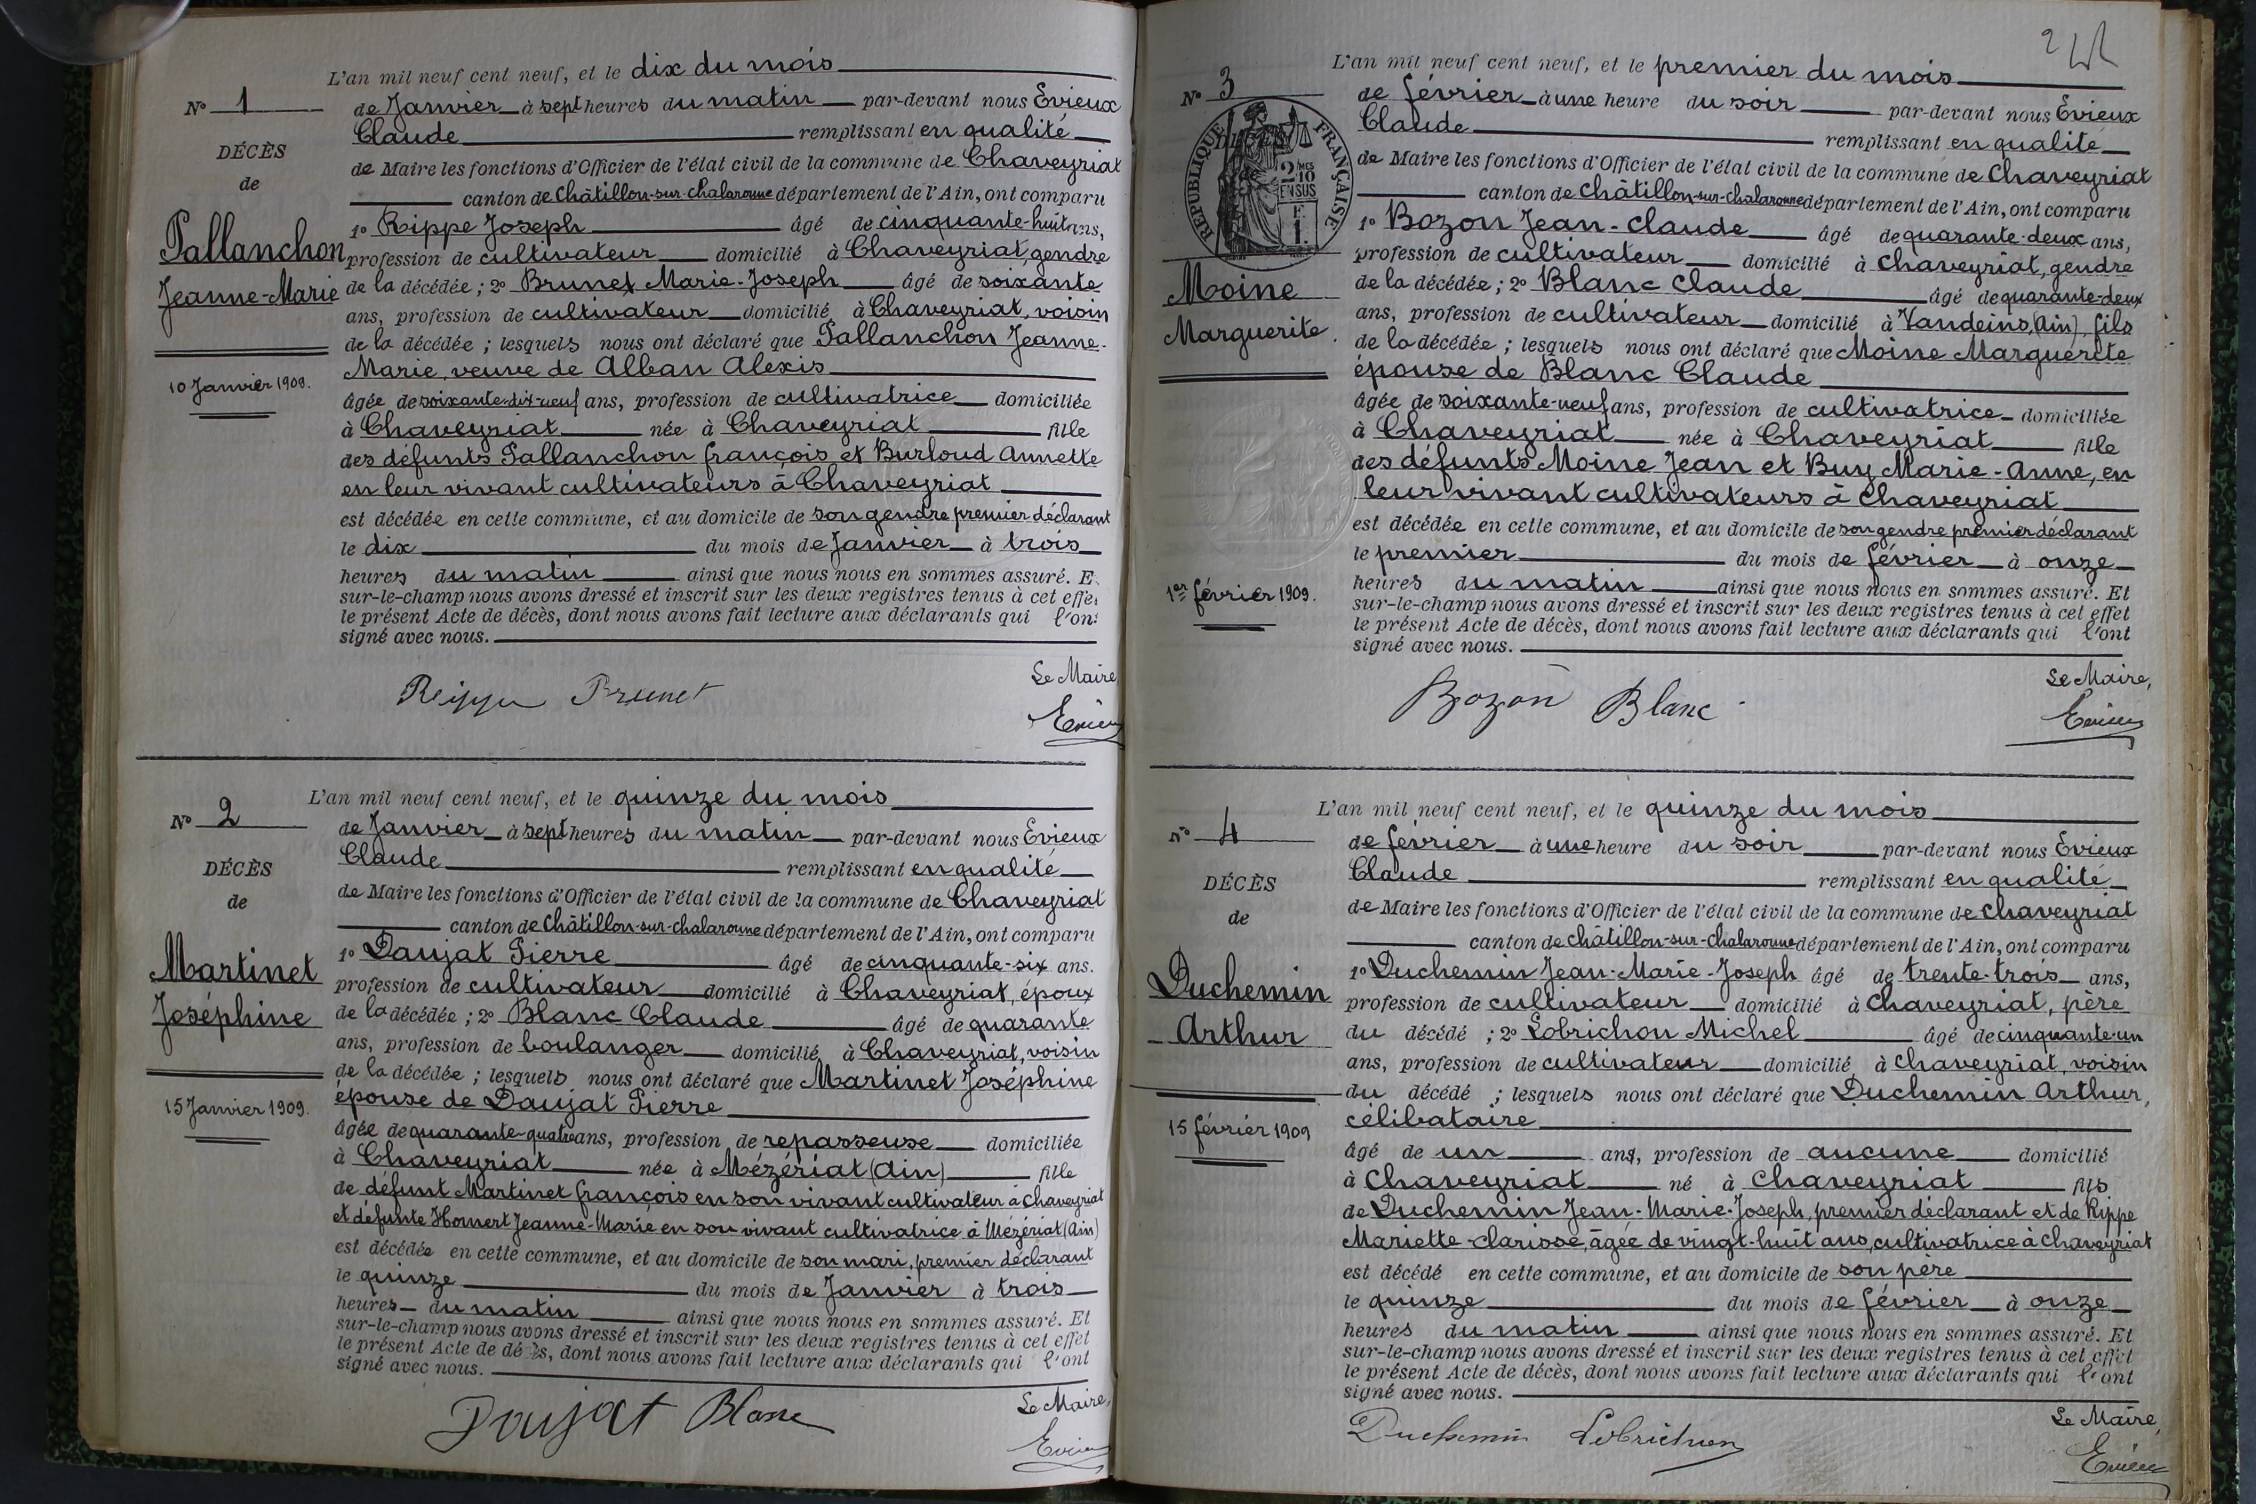 L'an mil neuf cent neuf, et le dix du mois
N° 1
de Janvier à sept heures du matin par-devant nous Evieux
Claude remplissant en qualité
DÉCÈS
de Maire les fonctions d'Officier de l'état civil de la commune de Chaveyriat
de
canton de Châtillon-sur-Chalaronne département de l'Ain, ont comparu
1° Rippe Joseph âgé de cinquante-huit ans,
Pallanchon
profession de cultivateur domicilié à Chaveyriat, gendre
Jeanne-Marie
de la décédée; 2° Brunet Marie-Joseph âgé de soixante
ans, profession de cultivateur domicilié à Chaveyriat, voisin
de la décédée; lesquels nous ont déclaré que Pallanchon Jeanne-
Marie, veuve de Alban Alexis
10 Janvier 1909.
âgée de soixante-dix-neuf ans, profession de cultivatrice domiciliée
à Chaveyriat née à Chaveyriat fille
des défunts Pallanchon François et Burloud Annette
en leur vivant cultivateurs à Chaveyriat
est décédée en cette commune, et au domicile de son gendre premier déclarant
le dix du mois de Janvier à trois
heures du matin ainsi que nous nous en sommes assuré. E
sur-le-champ nous avons dressé et inscrit sur les deux registres tenus à cet effe
le présent Acte de décès, dont nous avons fait lecture aux déclarants qui l'on
signé avec nous.
Le Maire
Rippe Brunet
Evieux
L'an mil neuf cent neuf, et le quinze du mois
N° 2
de Janvier à sept heures du matin par-devant nous Evieux
Claude remplissant en qualité
DÉCÈS
de Maire les fonctions d'Officier de l'état civil de la commune de Chaveyriat
de
canton de Châtillon-sur-Chalaronne département de l'Ain, ont comparu
1° Daujat Pierre âgé de cinquante-six ans.
Martinet
profession de cultivateur domicilié à Chaveyriat, époux
Joséphine
de la décédée; 2° Blanc Claude âgé de quarante
ans, profession de boulanger domicilié à Chaveyriat, voisin
de la décédée; lesquels nous ont déclaré que Martinet Joséphine
épouse de Daujat Pierre
15 Janvier 1909.
âgée de quarante-quatre ans, profession de repasseuse domiciliée
à Chaveyriat née à Mézériat (Ain) fille
de défunt Martinet François en son vivant cultivateur à Chaveyriat
et défunte Hornert Jeanne-Marie en son vivant cultivatrice à Mézériat (Ain)
est décédée en cette commune, et au domicile de son mari, premier déclarant
le quinze du mois de Janvier à trois
heures du matin ainsi que nous nous en sommes assuré. Et
sur-le-champ nous avons dressé et inscrit sur les deux registres tenus à cet effet
le présent Acte de décès, dont nous avons fait lecture aux déclarants qui l'ont
signé avec nous.
Le Maire,
Daujat Blanc
Evieux
L'an mil neuf cent neuf, et le premier du mois
N° 3
de février à une heure du soir par-devant nous Evieux
Claude remplissant en qualité
RÉPUBLIQUE FRANÇAISE
2 MES 10 EN SUS
F 1
de Maire les fonctions d'Officier de l'état civil de la commune de Chaveyriat
canton de Châtillon-sur-Chalaronne département de l'Ain, ont comparu
1° Bozon Jean-Claude âgé de quarante-deux ans,
profession de cultivateur domicilié à Chaveyriat, gendre
Moine
de la décédée; 2° Blanc Claude âgé de quarante-deux
ans, profession de cultivateur domicilié à Vandeins (Ain), fils
Marguerite
de la décédée; lesquels nous ont déclaré que Moine Marguerite
épouse de Blanc Claude
âgée de soixante-neuf ans, profession de cultivatrice domiciliée
à Chaveyriat née à Chaveyriat fille
des défunts Moine Jean et Buy Marie-Anne, en
leur vivant cultivateurs à Chaveyriat
est décédée en cette commune, et au domicile de son gendre premier déclarant
le premier du mois de février à onze
1er février 1909.
heures du matin ainsi que nous nous en sommes assuré. Et
sur-le-champ nous avons dressé et inscrit sur les deux registres tenus à cet effet
le présent Acte de décès, dont nous avons fait lecture aux déclarants qui l'ont
signé avec nous.
Le Maire,
Bozon Blanc
Evieux
L'an mil neuf cent neuf, et le quinze du mois
N° 4
de février à une heure du soir par-devant nous Evieux
Claude remplissant en qualité
DÉCÈS
de Maire les fonctions d'Officier de l'état civil de la commune de Chaveyriat
de
canton de Châtillon-sur-Chalaronne département de l'Ain, ont comparu
1° Duchemin Jean-Marie-Joseph âgé de trente-trois ans,
Duchemin
profession de cultivateur domicilié à Chaveyriat, père
Arthur
du décédé; 2° Lobrichon Michel âgé de cinquante-un
ans, profession de cultivateur domicilié à Chaveyriat, voisin
du décédé; lesquels nous ont déclaré que Duchemin Arthur,
célibataire
15 février 1909
âgé de un an, profession de aucune domicilié
à Chaveyriat né à Chaveyriat fils
de Duchemin Jean-Marie-Joseph, premier déclarant et de Rippe
Mariette-Clarisse, âgée de vingt-huit ans, cultivatrice à Chaveyriat
est décédé en cette commune, et au domicile de son père
le quinze du mois de février à onze
heures du matin ainsi que nous nous en sommes assuré. Et
sur-le-champ nous avons dressé et inscrit sur les deux registres tenus à cet effet
le présent Acte de décès, dont nous avons fait lecture aux déclarants qui l'ont
signé avec nous.
Le Maire,
Duchemin Lobrichon
Evieux